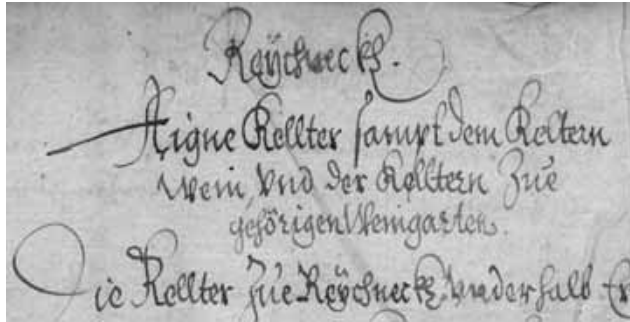 Reÿchneckh.
Aigne Kellter sampt dem Keltern
Wein, Vnd der Kelltern Zue
gehörigen Weingarten.
Die Kellter Zue Reÿchneckh Vnderhalb